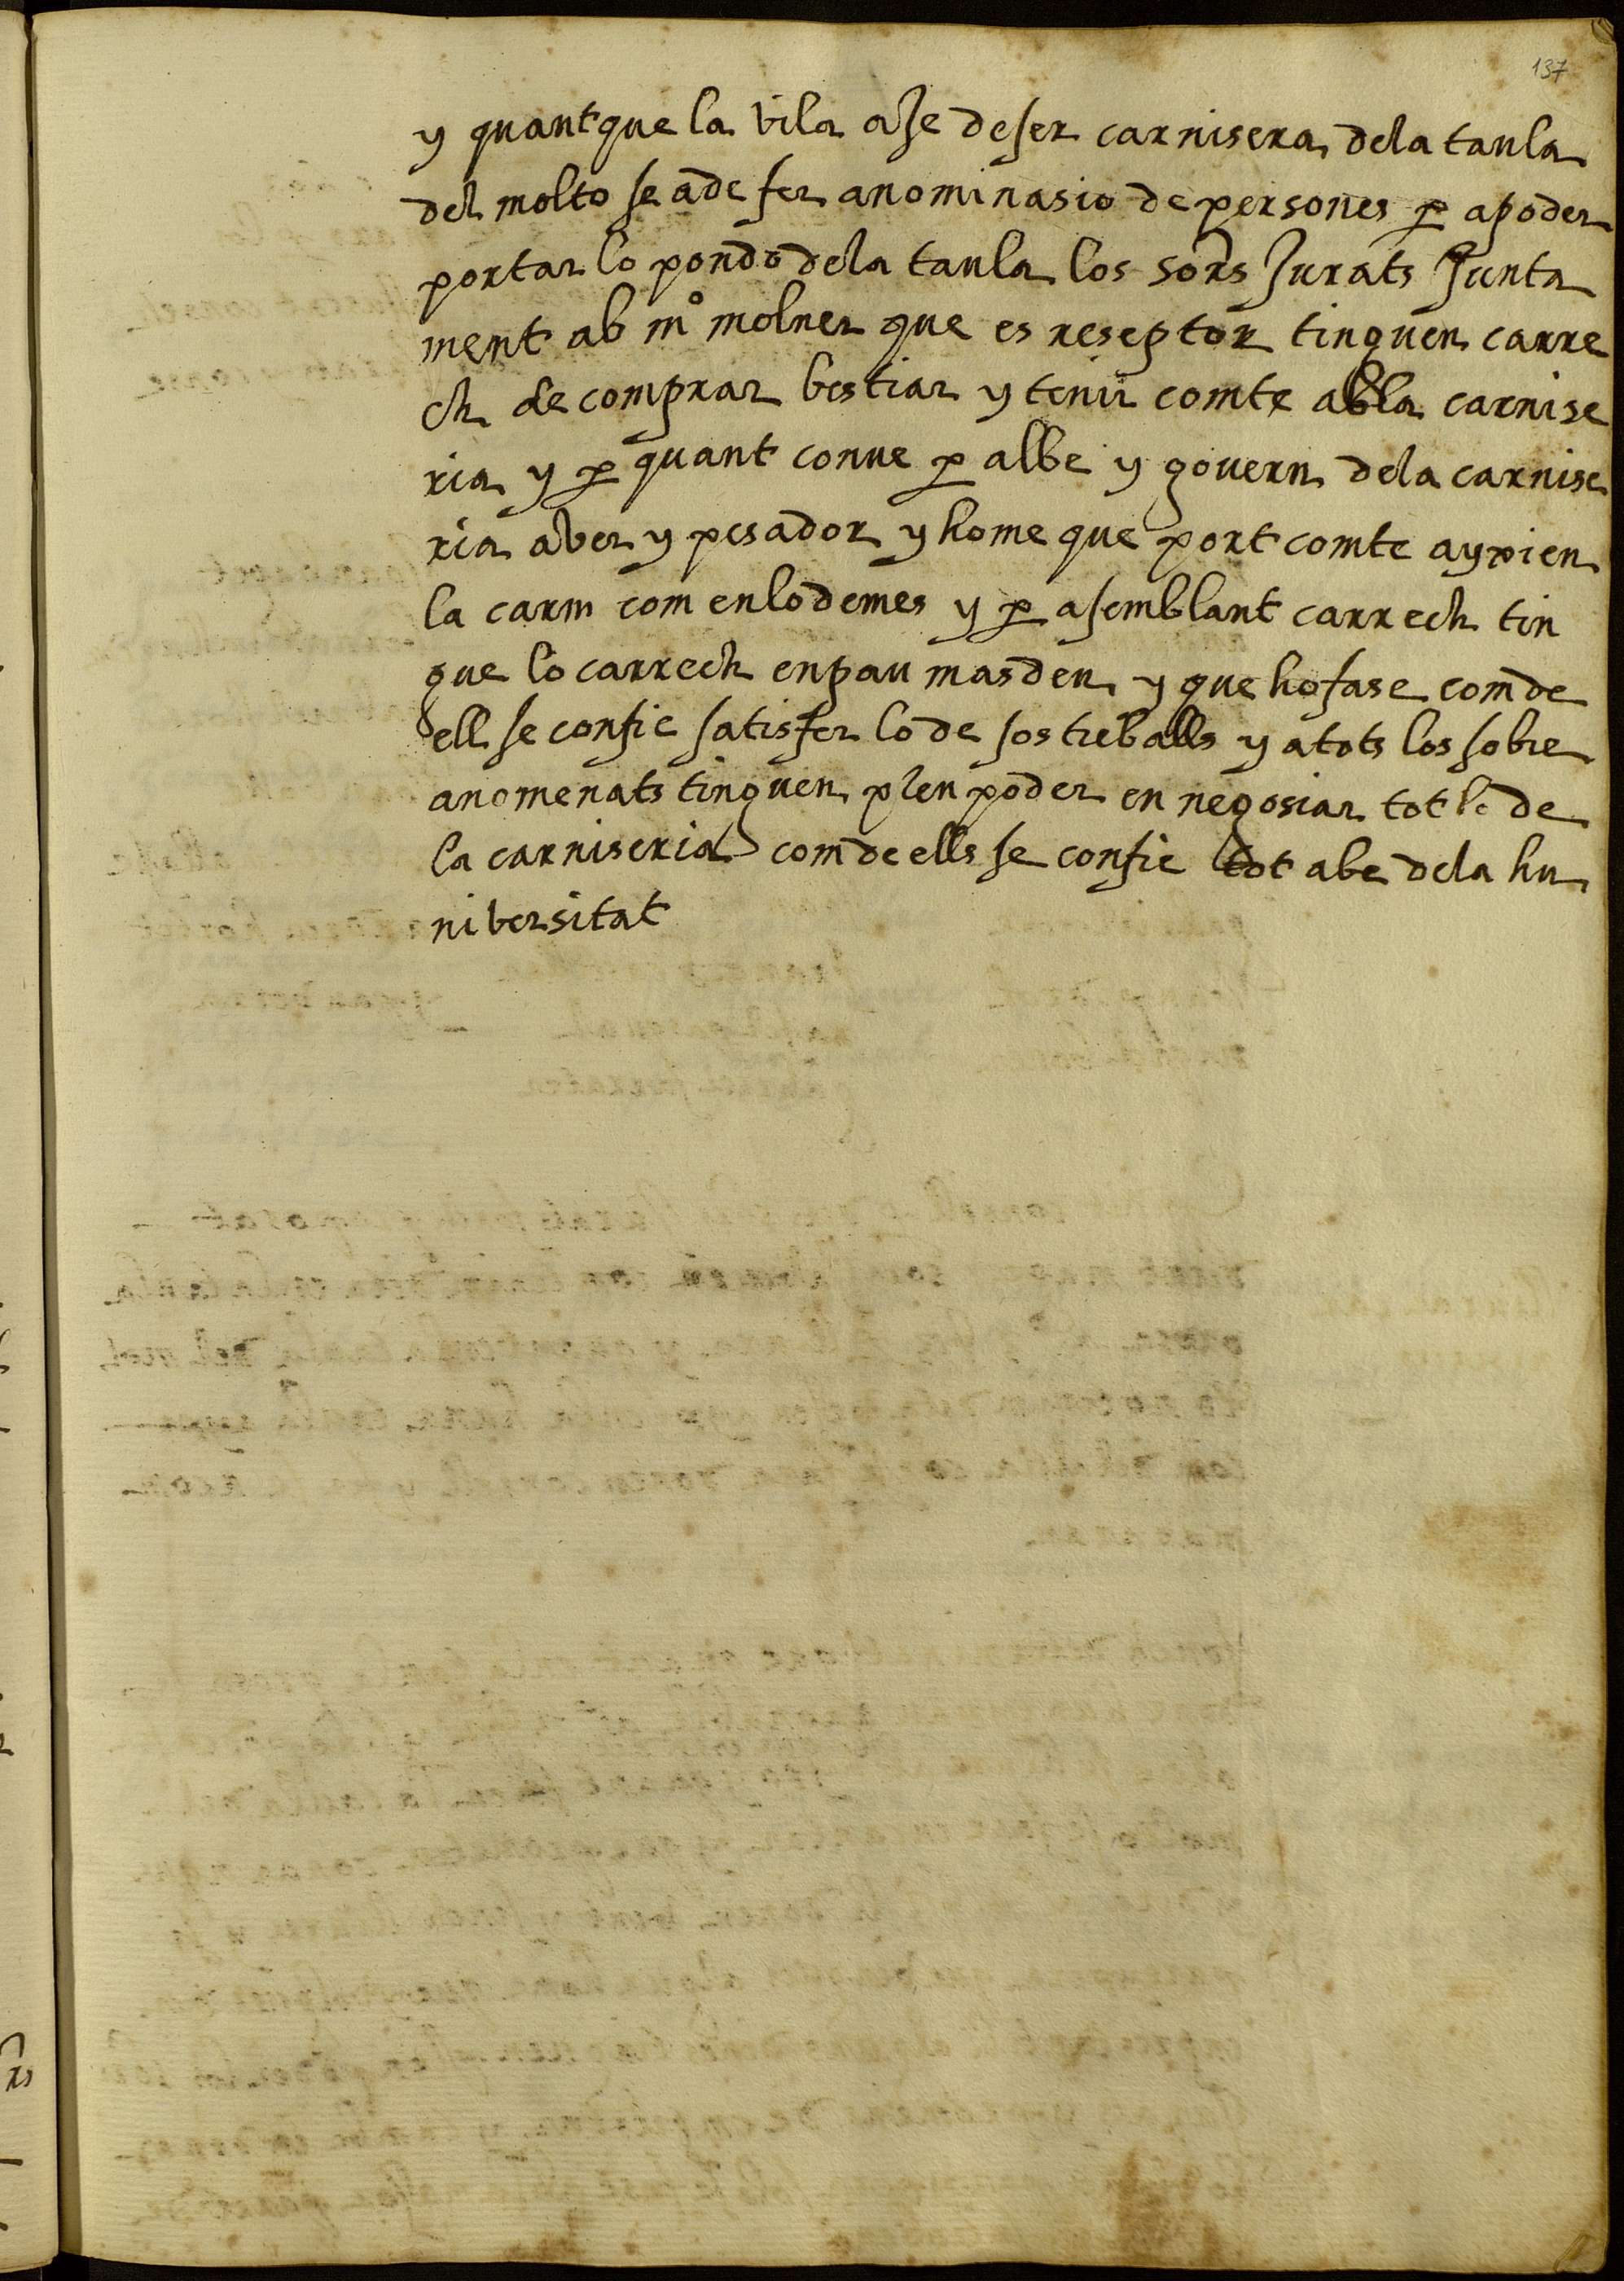 137
y quant que la vila ase deser carnisera dela taula
del molto se ade fer anominasio de persones p apoder
portar lo pondo dela taula los sors Jurats Junta
ment ab mº molner que es reseptor tinguen carre
ch de comprar bestiar y tenir comte abla carnise
ria y p quant conve p albe y govern dela carnise
ria aver y pesador y home que port comte aypien
la carn com enlodemes y p asemblant carrech tin
gue lo carrech enpau masdeu y que hofase com de
ell se confie satisfer lo de sos treballs y atots los sobre
anomenats tinguen plen poder en negosiar tot lo de
la carniseria com de ells se confie tot abe dela hu
niversitat